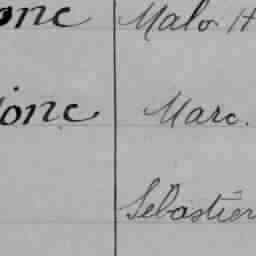 onc Malo H
ionc Marc.
Sebastien